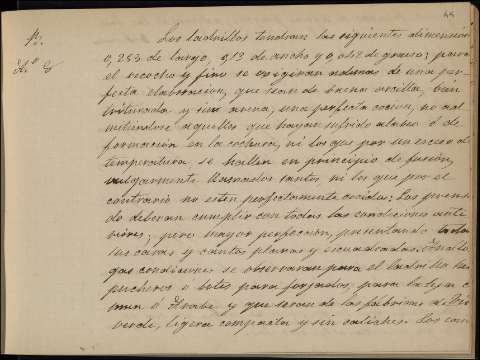 44
Los ladrillos tendran las siguientes dimensión
0,253 de largo, 0,12 de ancho y 0,048 de grueso; para
Art 6
el recocho y fino se exigiran ademas de una per-
fecta elaboracion, que sean de buena arcilla, bien
triturada y sin arena, una perfecta cocion, no ad
mitiendose aquellos que hayan sufrido alabeo ó de
formación en la cochura, ni los que por un exceso de
temperatura se hallen en principio de fusión,
vulgarmente llamados santos, ni los que por el
contrario no esten perfectamente cocidos: Los prensa
do deberan cumplir con todas las condiciones ante
riores; pero mayor perfección, presentando todas
sus caras y cantos planos y escuadradas. Análo
gas condiciones se observaran para el ladrillo
pucheros o botes para forjados, para la teja c
mun ó Arabe y que seran de las fabricas de Vi
verde, ligera compacta y sin caliches. Los